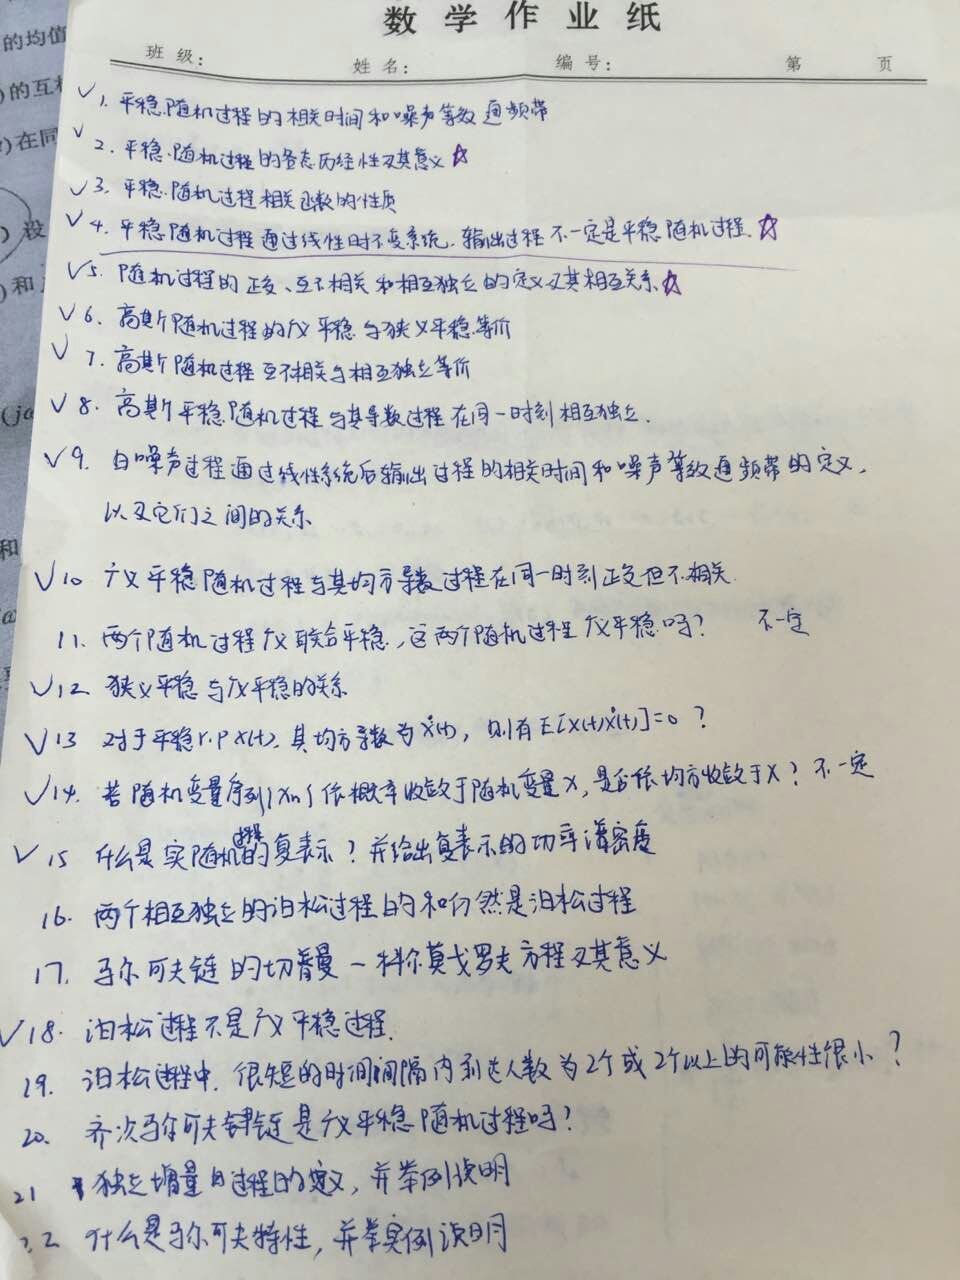 数学作业纸
班级: 姓名: 编号: 第 页
的均值
)的互相
)在同
) 设
)和
(ja
和
√1. 平稳随机过程的相关时间和噪声等效通频带
√2. 平稳随机过程的各态历经性及其意义☆
√3. 平稳随机过程相关函数的性质
√4. 平稳随机过程通过线性时不变系统,输出过程不一定是平稳随机过程.☆
√5. 随机过程的正交、互不相关和相互独立的定义及其相互关系☆
√6. 高斯随机过程的广义平稳与狭义平稳等价
√7. 高斯随机过程互不相关与相互独立等价
√8. 高斯平稳随机过程与其导数过程在同一时刻相互独立.
√9. 白噪声过程通过线性系统后输出过程的相关时间和噪声等效通频带的定义,
以及它们之间的关系
√10 广义平稳随机过程与其均方导数过程在同一时刻正交但不相关.
11. 两个随机过程广义联合平稳,这两个随机过程广义平稳吗? 不一定
√12 狭义平稳与广义平稳的关系
√13 对于平稳r.p X(t), 其均方导数为Ẋ(t), 则有E[X(t)Ẋ(t)]=0 ?
√14. 若随机变量序列{Xn}依概率收敛于随机变量X,是否依均方收敛于X? 不一定
√15 什么是实随机过程的复表示?并给出复表示的功率谱密度
16. 两个相互独立的泊松过程的和仍然是泊松过程
17. 马尔可夫链的切普曼-科尔莫戈罗夫方程及其意义
√18. 泊松过程不是广义平稳过程.
19. 泊松过程中,很短的时间间隔内到达人数为2个或2个以上的可能性很小?
20. 齐次马尔可夫链是广义平稳随机过程吗?
21 独立增量过程的定义,并举例说明
22 什么是马尔可夫特性,并举实例说明